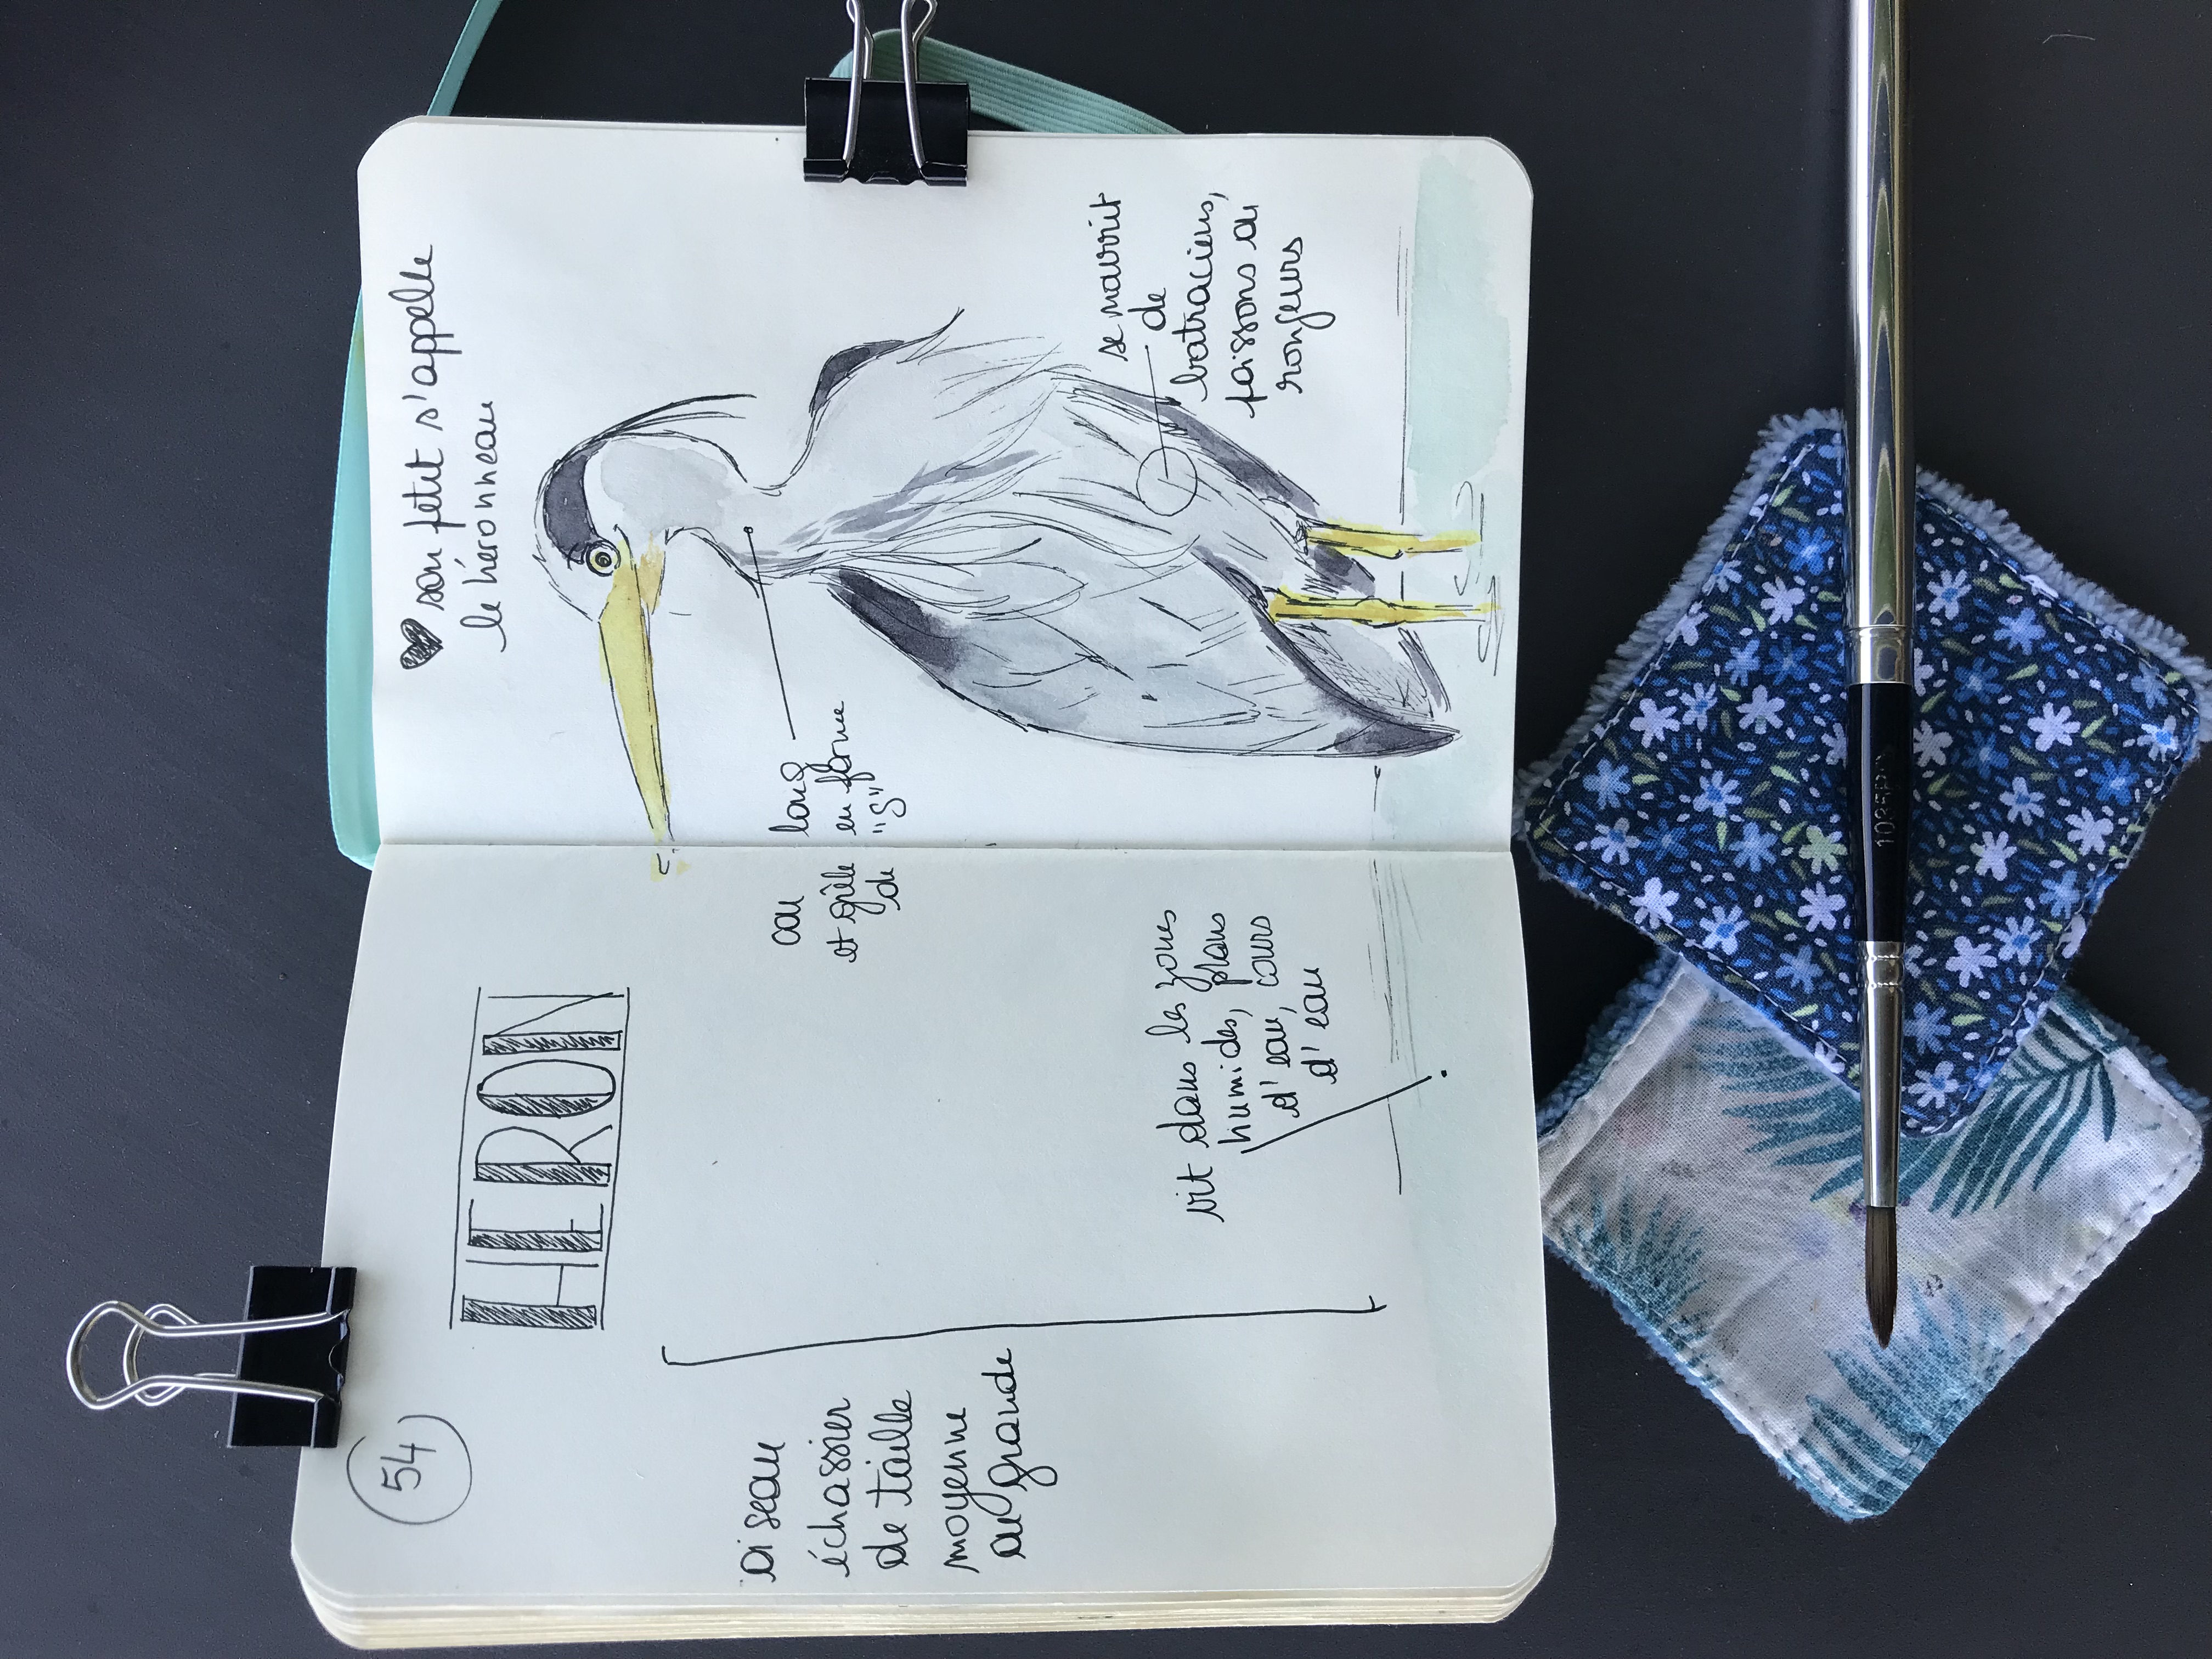 54
HERON
oiseau
échassier
de taille
moyenne
ou grande
vit dans les zones
humides, plans
d'eau, cours
d'eau
cou long
et grêle en forme
de "S"
son petit s'appelle
le héronneau
se nourrit
de
batraciens,
poissons ou
rongeurs